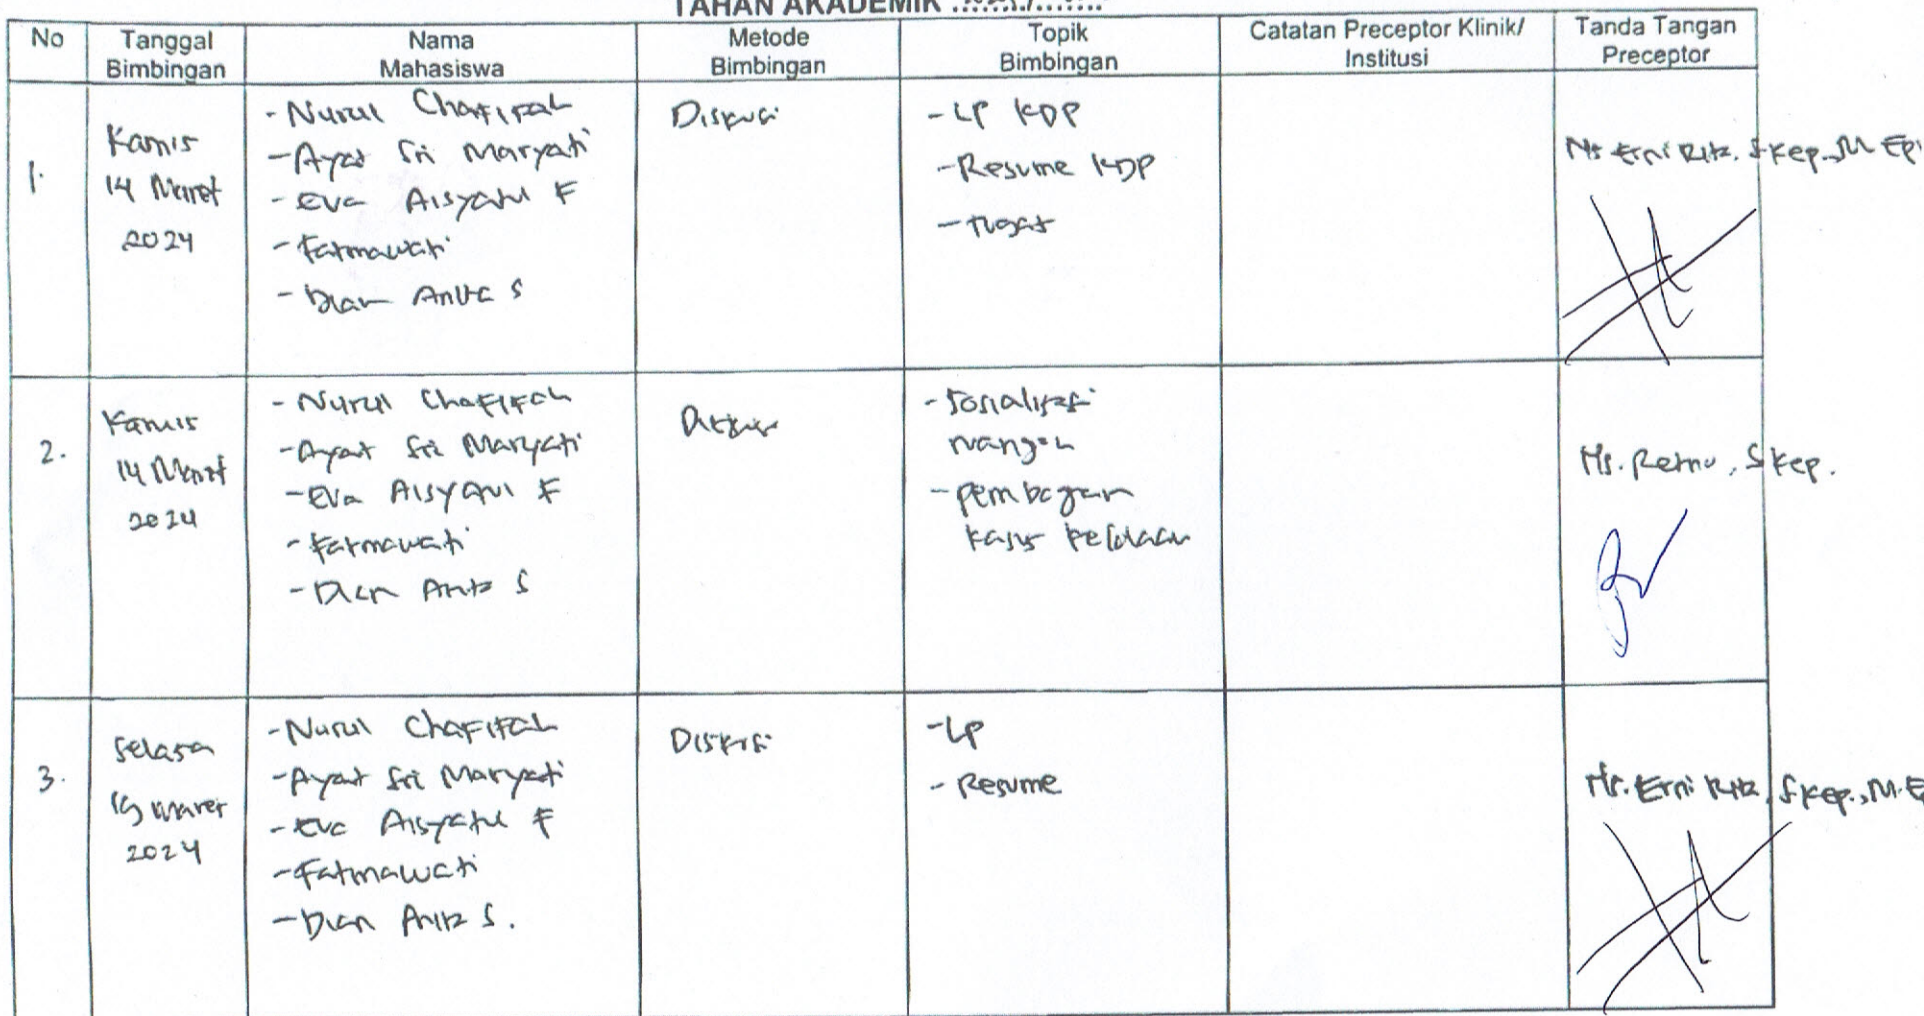 TAHAN AKADEMIK ......../........
No
Tanggal
Bimbingan
Nama
Mahasiswa
Metode
Bimbingan
Topik
Bimbingan
Catatan Preceptor Klinik/
Institusi
Tanda Tangan
Preceptor
1.
Kamis
14 Maret
2024
- Nurul Chafifah
- Ayat Sri Maryati
- Eva Aisyatul F
- Fatmawati
- Dian Anita S
Diskusi
- LP KDP
- Resume KDP
- Tugas
Ns Erni Rita, S.Kep., M.Epi
2.
Kamis
14 Maret
2024
- Nurul Chafifah
- Ayat Sri Maryati
- Eva Aisyatul F
- Fatmawati
- Dian Anita S
Diskusi
- Sosialisasi
ruangan
- pembagian
kasus kelolaan
Ns. Retno, S.Kep.
3.
Selasa
19 Maret
2024
- Nurul Chafifah
- Ayat Sri Maryati
- Eva Aisyatul F
- Fatmawati
- Dian Anita S.
Diskusi
- LP
- Resume
Ns. Erni Rita, S.Kep., M.E